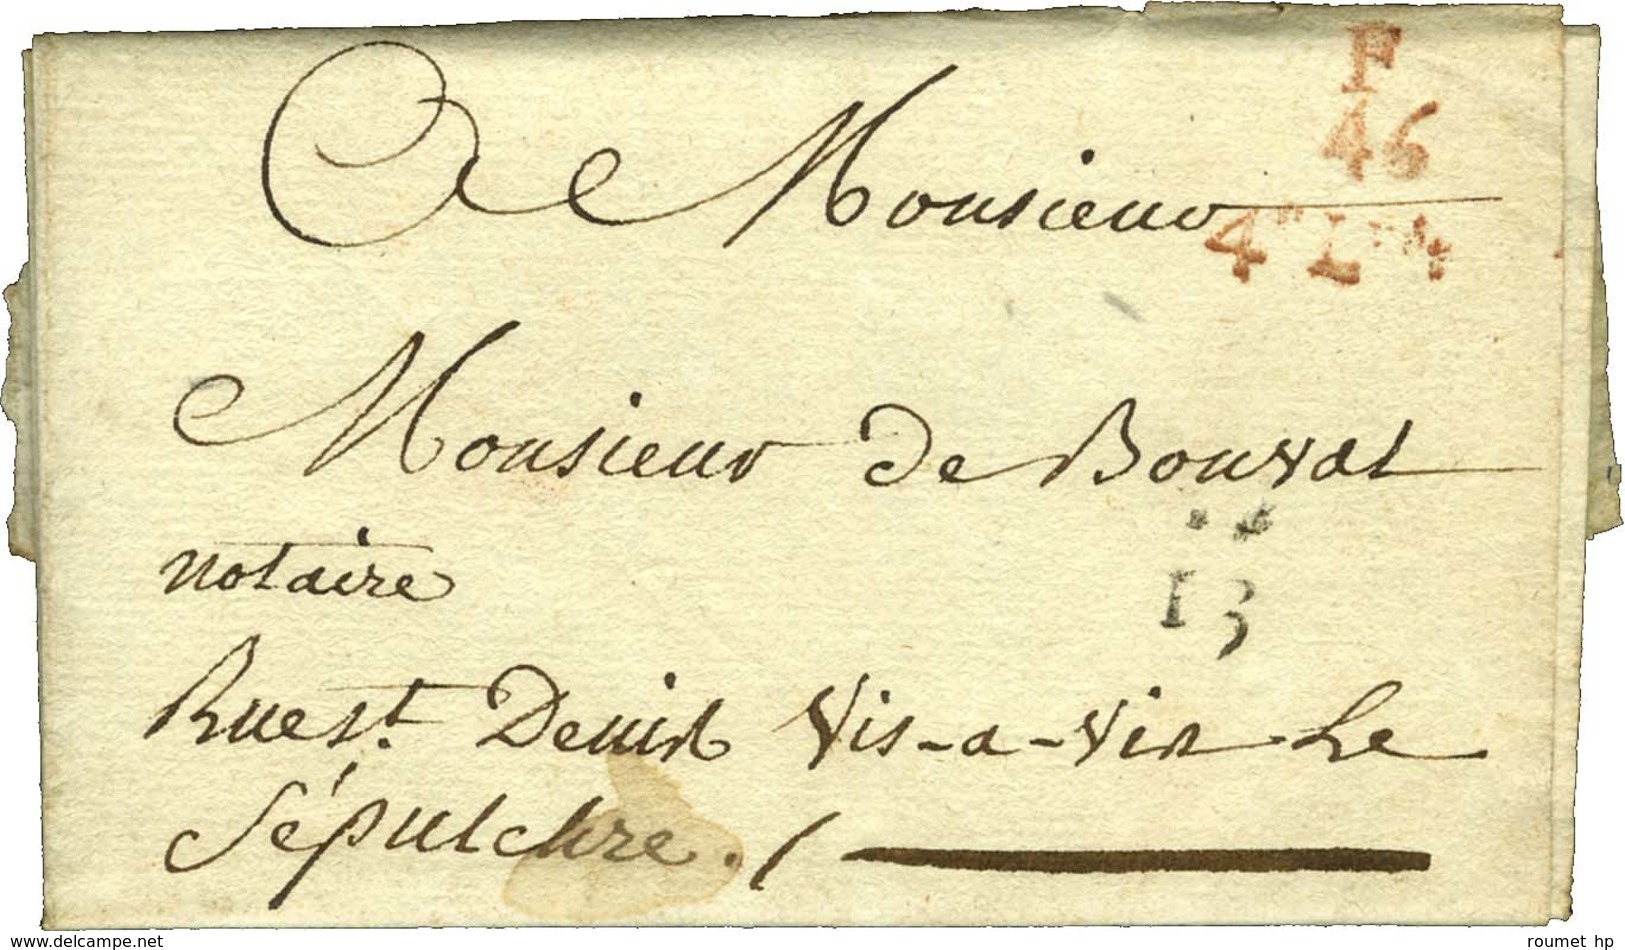 F
46
A Monsieur
4e Lee
Monsieur de Bonval
notaire
13
Rue st. Denis Vis-a-vis Le
Sépulchre.
www.delcampe.net
roumet hp